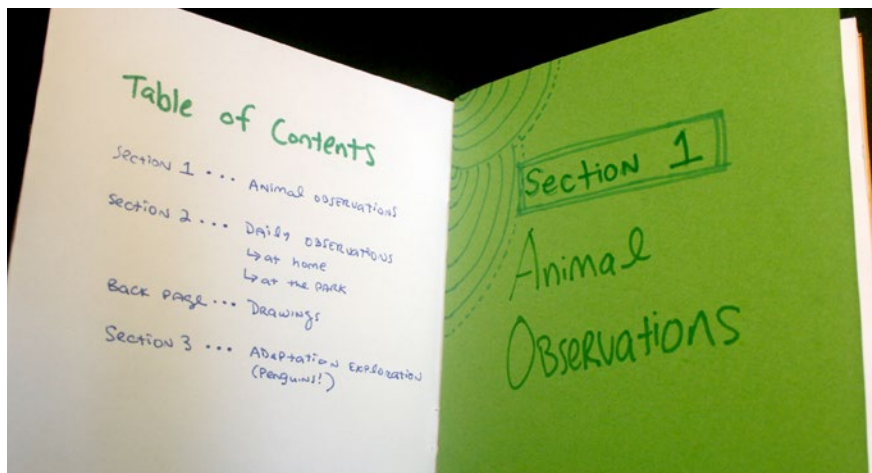 Table of Contents
Section 1 ... Animal Observations
Section 2 ... Daily Observations
↳ at home
↳ at the park
Back page ... Drawings
Section 3 ... Adaptation Exploration
(Penguins!)
Section 1
Animal
Observations